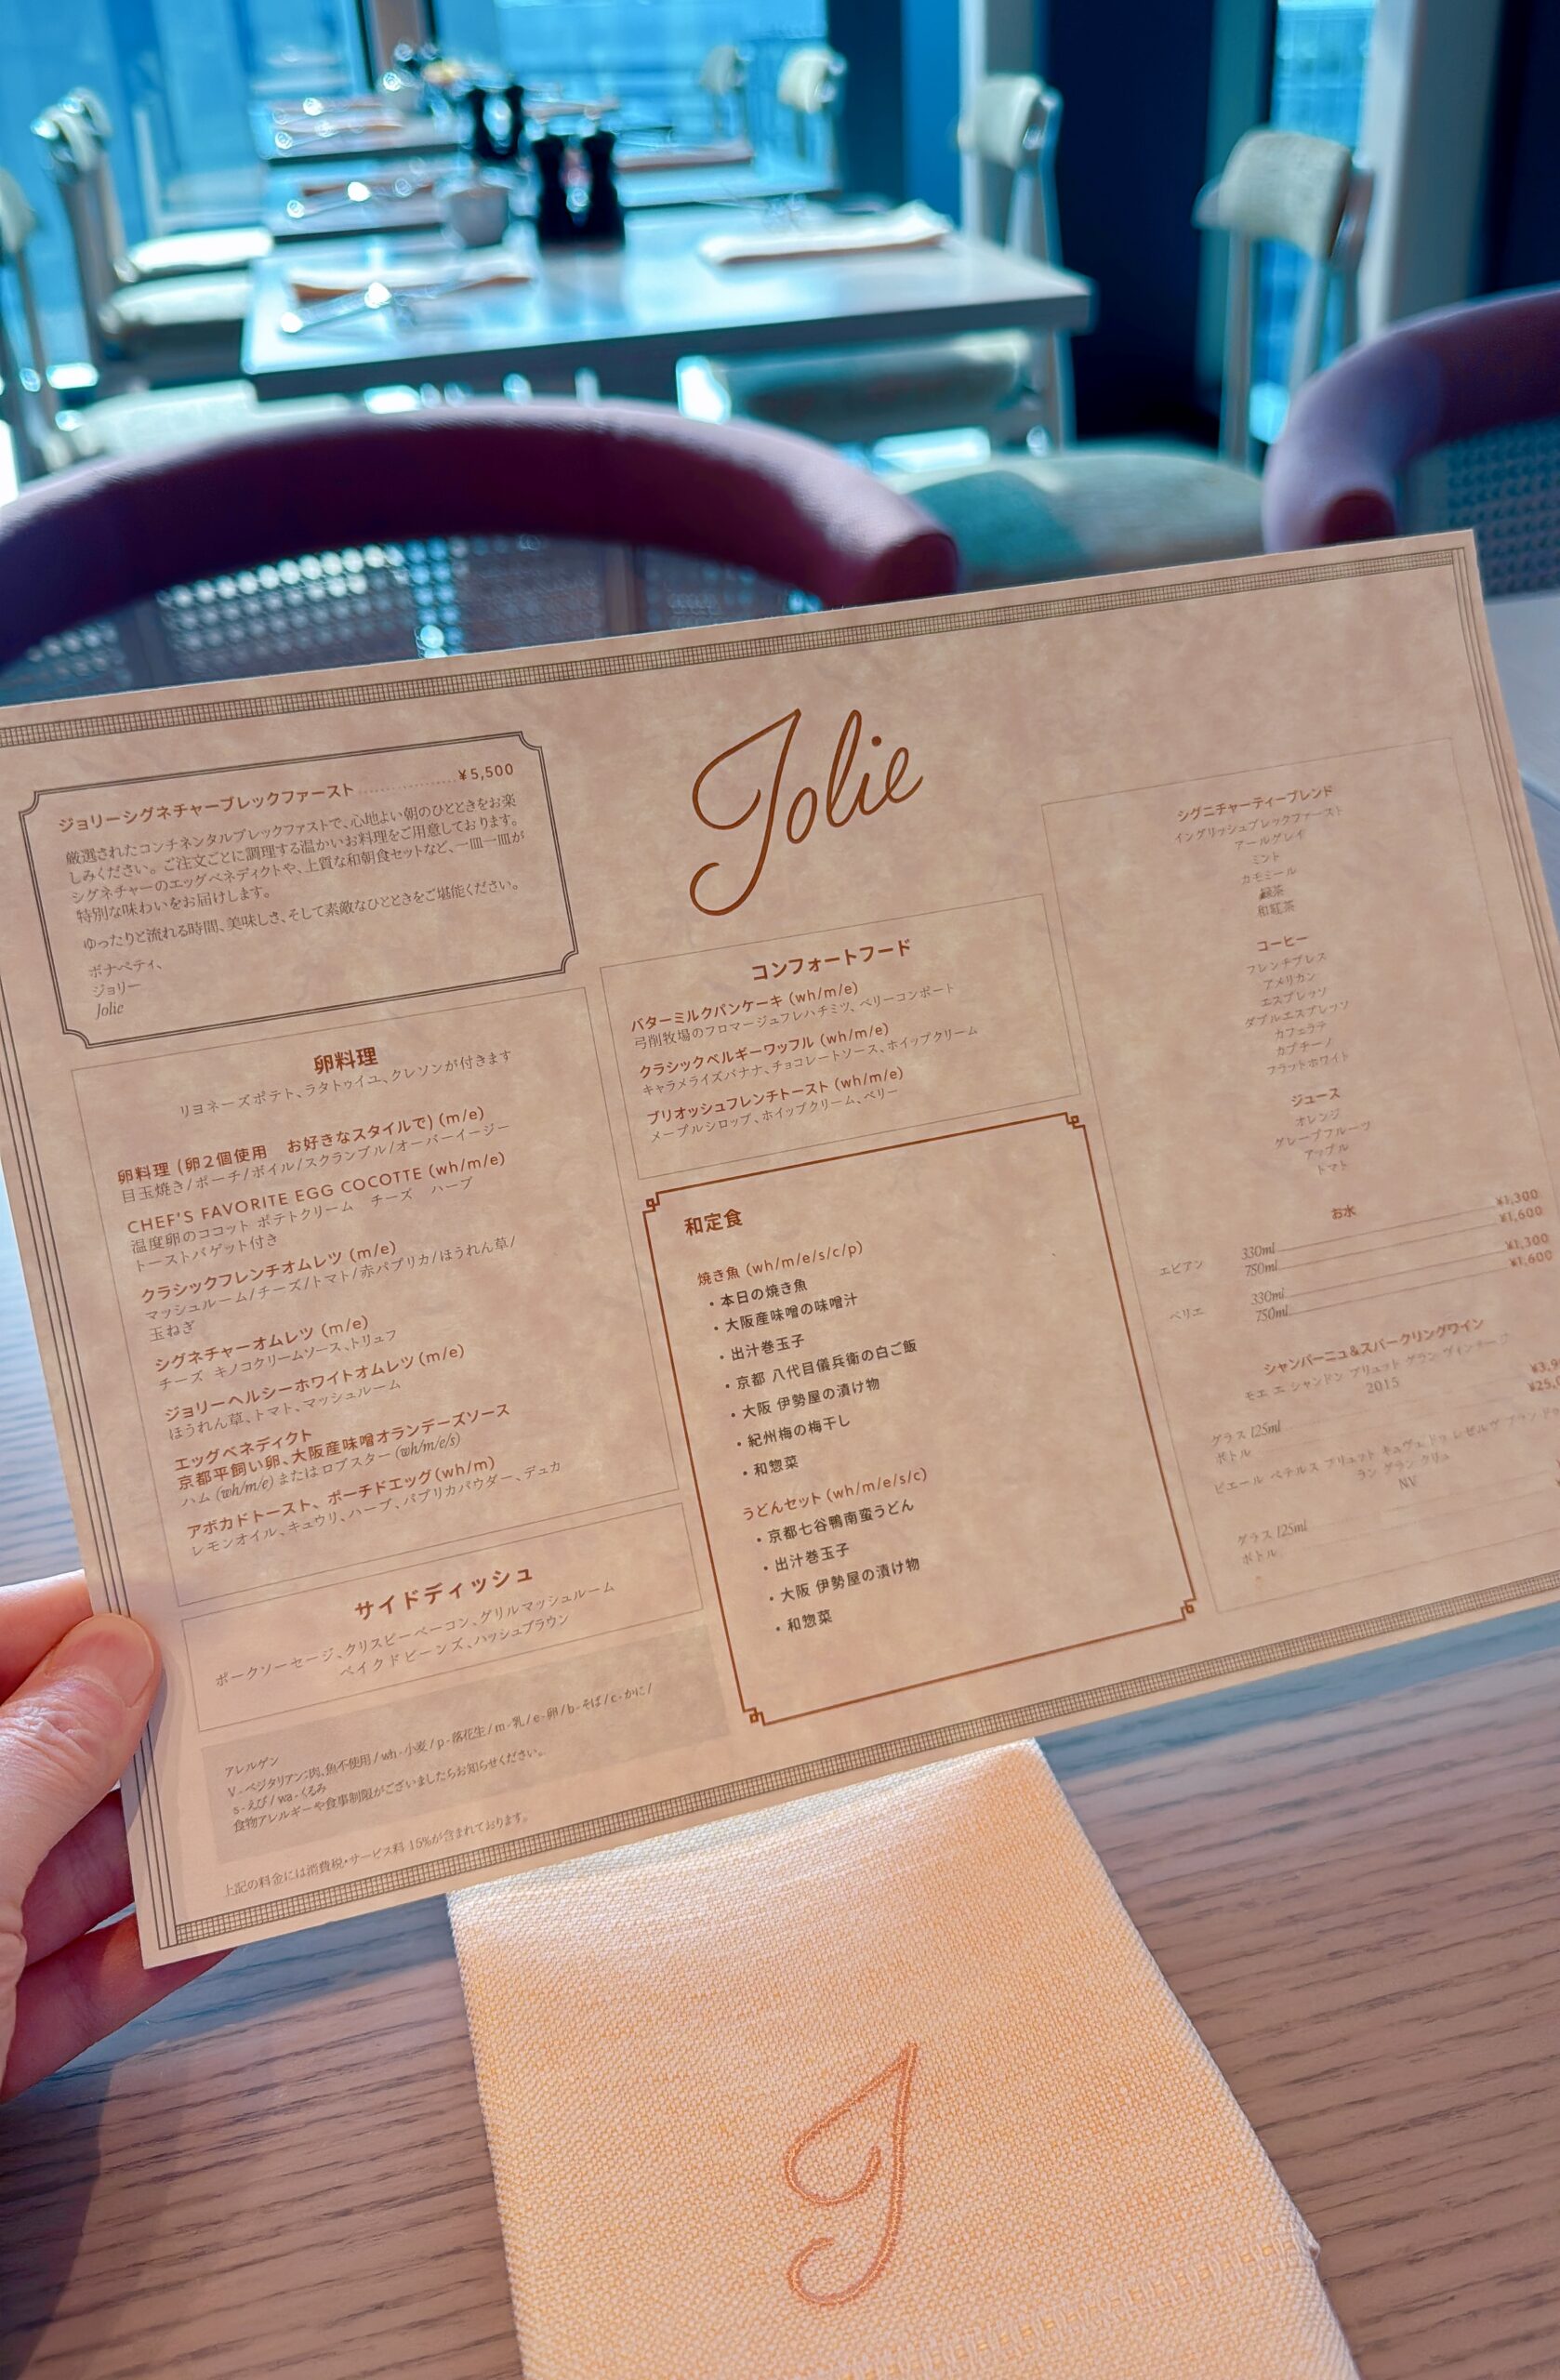 Jolie
ジョリーシグネチャーブレックファースト ¥5,500
厳選されたコンチネンタルブレックファストで、心地よい朝のひとときをお楽
しみください。ご注文ごとに調理する温かいお料理をご用意しております。
シグネチャーのエッグベネディクトや、上質な和朝食セットなど、一皿一皿が
特別な味わいをお届けします。
ゆったりと流れる時間、美味しさ、そして素敵なひとときをご堪能ください。
ボナペティ、
ジョリー
Jolie
卵料理
リヨネーズポテト、ラタトゥイユ、クレソンが付きます
卵料理 (卵2個使用 お好きなスタイルで) (m/e)
目玉焼き/ポーチ/ボイル/スクランブル/オーバーイージー
CHEF'S FAVORITE EGG COCOTTE (wh/m/e)
温度卵のココット ポテトクリーム チーズ ハーブ
トーストバゲット付き
クラシックフレンチオムレツ (m/e)
マッシュルーム/チーズ/トマト/赤パプリカ/ほうれん草/
玉ねぎ
シグネチャーオムレツ (m/e)
チーズ キノコクリームソース、トリュフ
ジョリーヘルシーホワイトオムレツ(m/e)
ほうれん草、トマト、マッシュルーム
エッグベネディクト
京都平飼い卵、大阪産味噌オランデーズソース
ハム (wh/m/e) またはロブスター (wh/m/e/s)
アボカドトースト、ポーチドエッグ(wh/m)
レモンオイル、キュウリ、ハーブ、パプリカパウダー、デュカ
サイドディッシュ
ポークソーセージ、クリスピーベーコン、グリルマッシュルーム
ベイクドビーンズ、ハッシュブラウン
アレルゲン
V - ベジタリアン:肉、魚不使用 / wh - 小麦 / p - 落花生 / m - 乳 / e - 卵 / b - そば / c - かに /
s - えび / wa - くるみ
食物アレルギーや食事制限がございましたらお知らせください。
上記の料金には消費税・サービス料 15%が含まれております。
コンフォートフード
バターミルクパンケーキ (wh/m/e)
弓削牧場のフロマージュフレハチミツ、ベリーコンポート
クラシックベルギーワッフル (wh/m/e)
キャラメライズバナナ、チョコレートソース、ホイップクリーム
ブリオッシュフレンチトースト (wh/m/e)
メープルシロップ、ホイップクリーム、ベリー
和定食
焼き魚 (wh/m/e/s/c/p)
・本日の焼き魚
・大阪産味噌の味噌汁
・出汁巻玉子
・京都 八代目儀兵衛の白ご飯
・大阪 伊勢屋の漬け物
・紀州梅の梅干し
・和惣菜
うどんセット (wh/m/e/s/c)
・京都七谷鴨南蛮うどん
・出汁巻玉子
・大阪 伊勢屋の漬け物
・和惣菜
シグニチャーティーブレンド
イングリッシュブレックファースト
アールグレイ
ミント
カモミール
緑茶
和紅茶
コーヒー
フレンチプレス
アメリカン
エスプレッソ
ダブルエスプレッソ
カフェラテ
カプチーノ
フラットホワイト
ジュース
オレンジ
グレープフルーツ
アップル
トマト
お水
エビアン 330ml ¥1,300
750ml ¥1,600
ペリエ 330ml ¥1,300
750ml ¥1,600
シャンパーニュ&スパークリングワイン
モエ エ シャンドン ブリュット グラン ヴィンテージ
2015
グラス 125ml
ボトル
ピエール ペテルス ブリュット キュヴェ ド ラ レゼルヴ ブラン ド
ラン グラン クリュ
NV
グラス 125ml
ボトル
J